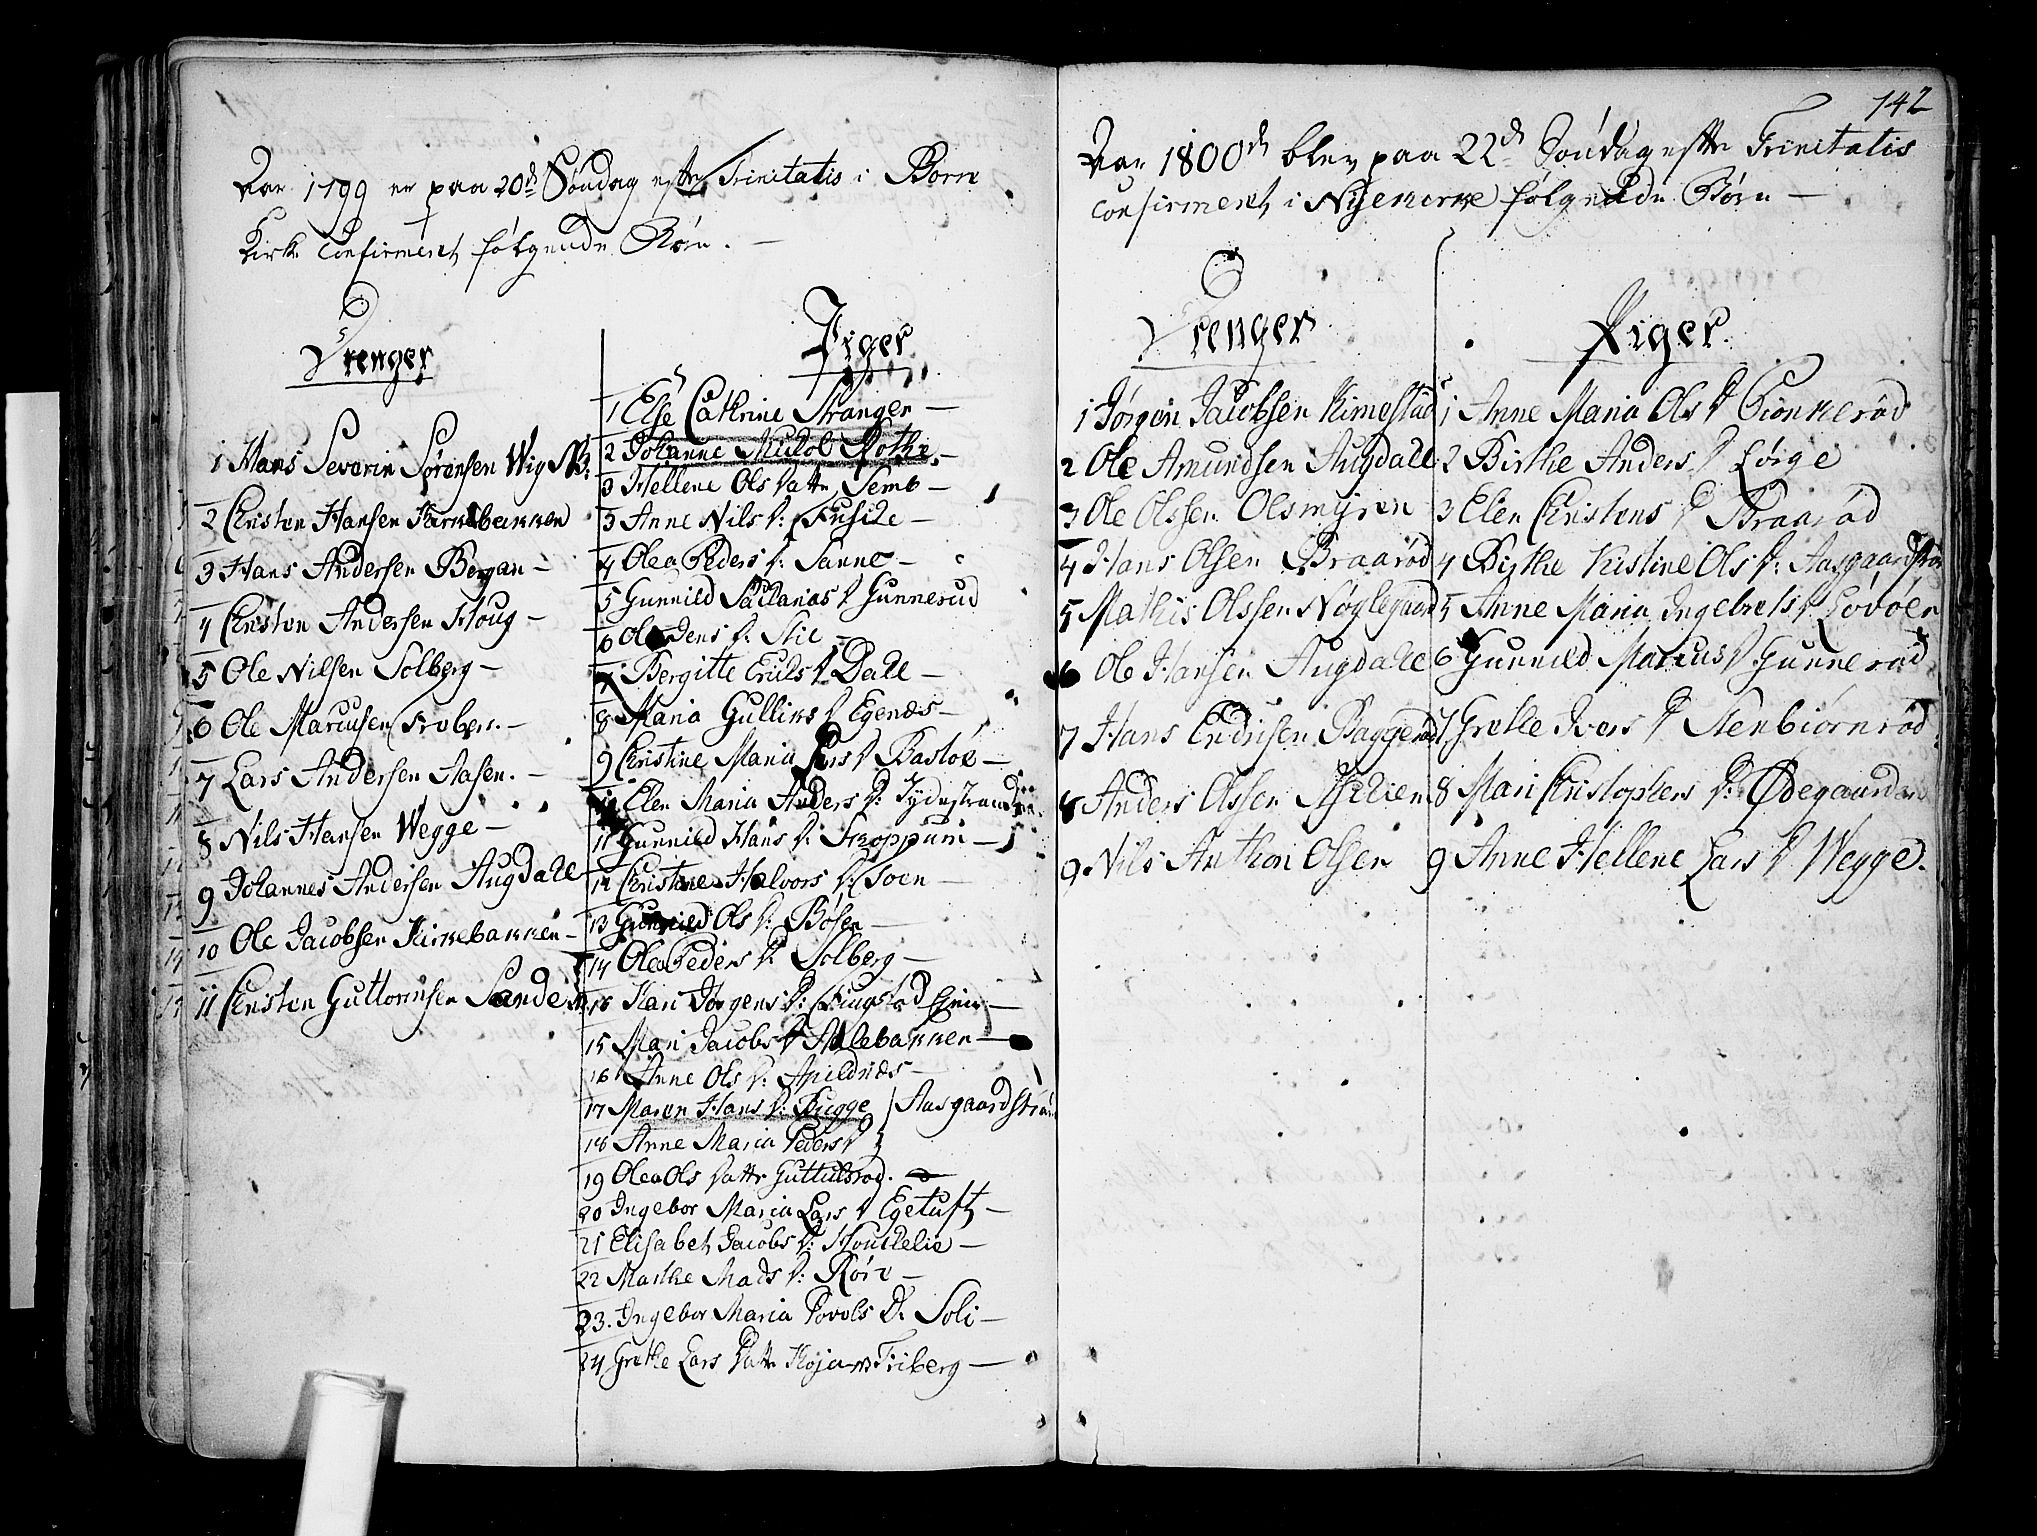 Aar 1799 er paa 20de Søndag efter Trinitatis i Borre
Kirke Confirmeret følgende Børn. —
Drenger
1 Hans Severin Sørensen Wig NB.
2 Christen Hansen Kirkebakken
3 Hans Andersen Bergan —
4 Christen Andersen Houg —
5 Ole Nilsen Solberg —
6 Ole Marcussen
7 Lars Andersen Aasen. —
8 Nils Hansen Wegge —
9 Johannes Andersen Augdahl
10 Ole Jacobsen Kirkebakken —
11 Christen Guttormsen Sanden
Piger
1 Else Cathrine Stranger —
2 Johanne Nicol Roth. —
3 Hellene Ols Datter Semb —
3 Anne Nils D:
4 Olea Peders D: Sanne —
5 Gunnild D Gunnerud
6 Ole Jens D: Slie —
7 Bergitte Erics D Dahl —
8 Maria Gullics D Egenæs —
9 Christine Maria Lars D: Bastøe —
Elen Maria Anders D:
11 Gunnild Hans D: Skoppum —
12 Christine Halvors D:
13 Gunnild Ols D: Bøsen —
14 Olea Peders D: Solberg —
15 Kari Jørgens D:
15 Mari Jacobs D —
16 Anne Ols D: Apildnæs —
17 Maren Hans D: Bugge } Aasgaardstran
18 Anne Maria Peders D }
19 Olea Ols Datter
20 Ingebor Maria Lars D Egetuft —
21 Elisabet Jacobs D:
22 Marthe Mads D: Røre —
23. Ingebor Maria Povels D. Soli —
24 Grethe Lars Datter Friberg —
142
Aar 1800de blev paa 22de Søndag efter Trinitatis
confirmeret i Nykirke følgende Børn —
Drenger
1 Jørgen Jacobsen Kimestad
2 Ole Amundsen Augdahl
3 Ole Olssen Olsmyren
4 Hans Olsen Braarød
5 Mathis Olssen Nøglegaard
6 Ole Hansen Augdahl
7 Hans Endrisen Baggerød
8 Anders Olssen
9. Nils Anthon Olsen
Piger.
1 Anne Maria Ols D
2 Birthe Anders D
3 Elen Christens D Braarød
4 Birthe Kistine Ols D: Aasgaardstran
5 Anne Maria Ingebrets D Løvøen
6 Gunnild Marcus D Gunnerød
7 Grethe Ivers D Stenbiørnrød
8 Mari Christophers D: Ødegaarden
9 Anne Hellene Lars D Wegge.